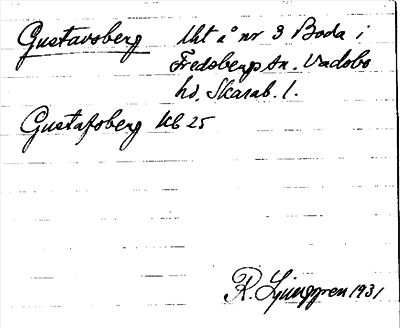 Gustavsberg lht å nr 3 Boda i
Fredsbergs sn. Vadsbo
hd, Skarab. l.
Gustafsberg kb 25
R. Ljunggren 1931